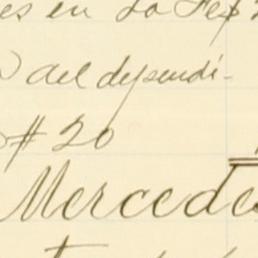 es en
del dependi-
# 20
Mercede